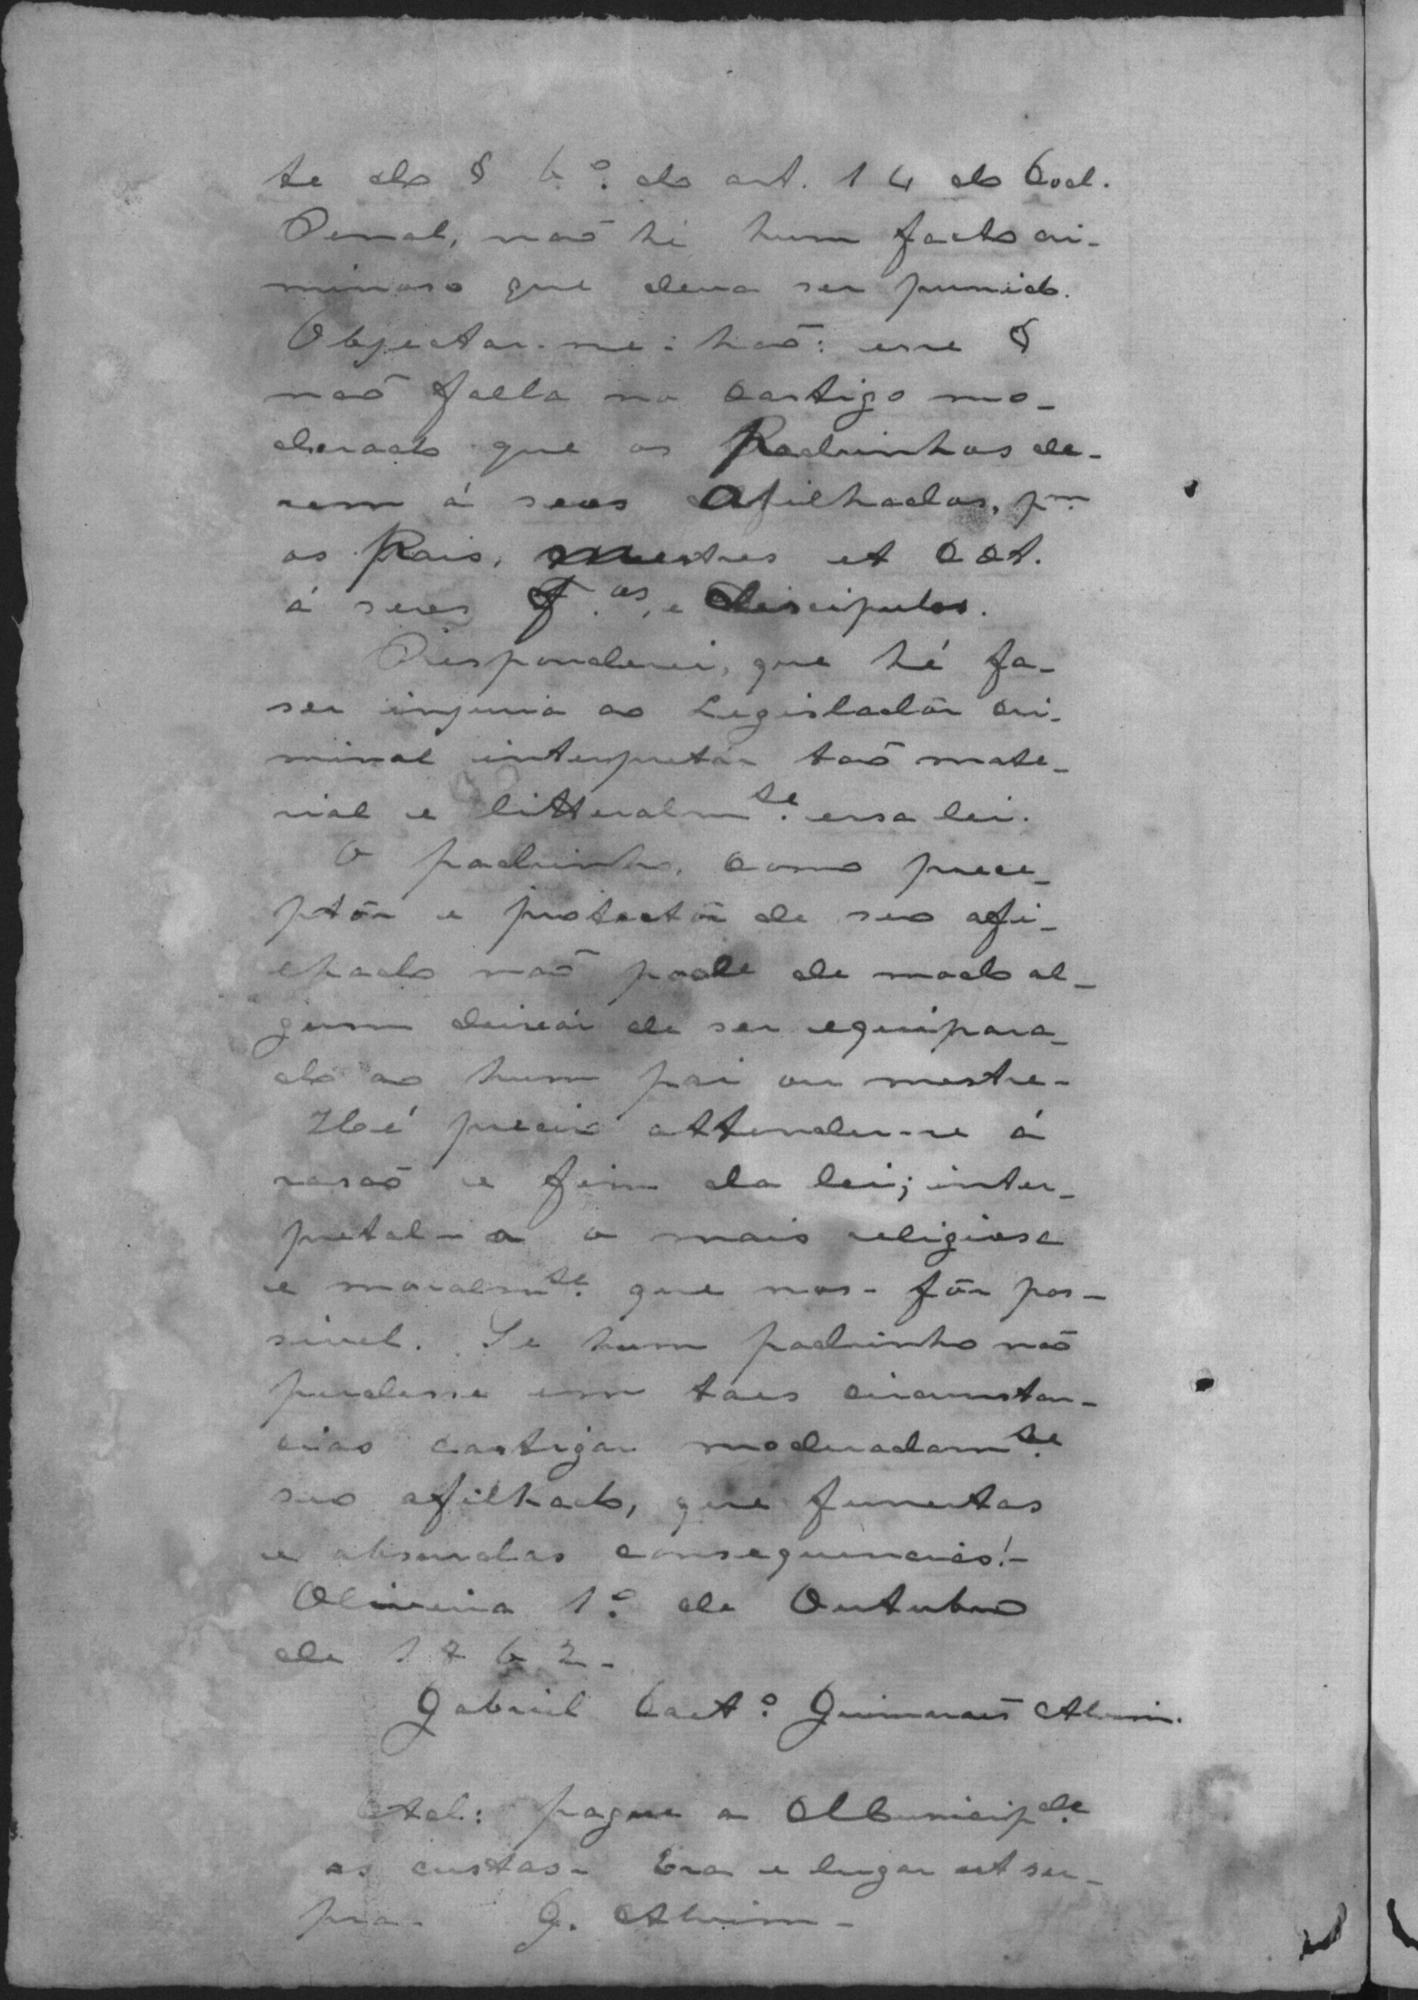 te do § 6.º do art. 14 do Cod.
Penal, naõ hé hum facto cri-
minoso que deva ser punido.
Objectar-me-haõ: esse §
naõ falla no castigo mo-
derado que os Padrinhos de-
rem á seos Afilhados, p.m
os Pais, Mestres et Cet.
á seus F.os, e Discipulos.
Responderei, que hé fa-
ser injuria ao Legisladôr cri-
minal interpretár taõ mate-
rial e litteralm.te essa lei.
O padrinho, como prece-
ptôr e protectôr de seo afi-
lhado naõ pode de modo al-
gum deixár de ser equipara-
do ao hum pai ou mestre-
Hé preciso attender-se á
rasaõ e fim da lei; inter-
pretal-a o mais religiosa
e moralm.te que nos- fôr pos-
sivel. Se hum padrinho naõ
pudesse em taes circunstan-
cias castigar moderadam.te
seo afilhado, que funestas
e absurdas consequencias!-
Oliveira 1.º de Outubro
de 1862-
Gabriel Caet.º Guimarães Alvim.
Ad.: pague a Municip.de
as custas- Era e lugar ut su-
pra- G. Alvim-